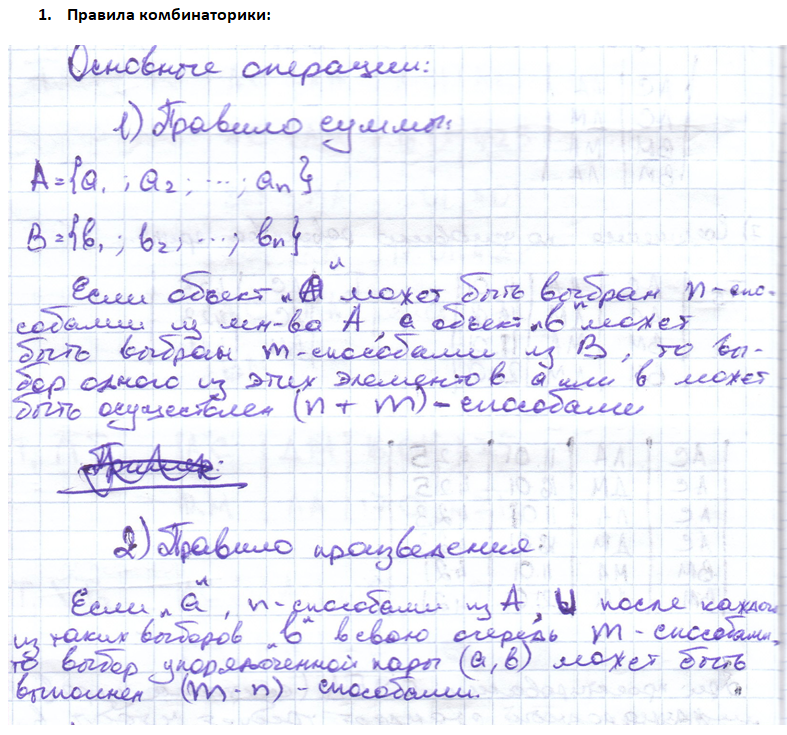 1. Правила комбинаторики:
Основные операции:
1) Правило суммы:
A={a₁; a₂; ...; aₙ}
B={b₁; b₂; ...; bₙ}
Если объект „a“ может быть выбран n-спо-
собами из мн-ва A, а объект „в“ может
быть выбран m-способами из B, то вы-
бор одного из этих элементов a или в может
быть осуществлен (n + m) - способами
2) Правило произведения:
Если „a“, n-способами из A, и после каждого
из таких выборов „в“ в свою очередь m-способами,
то выбор упорядоченной пары (a, в) может быть
выполнен (m·n) - способами.